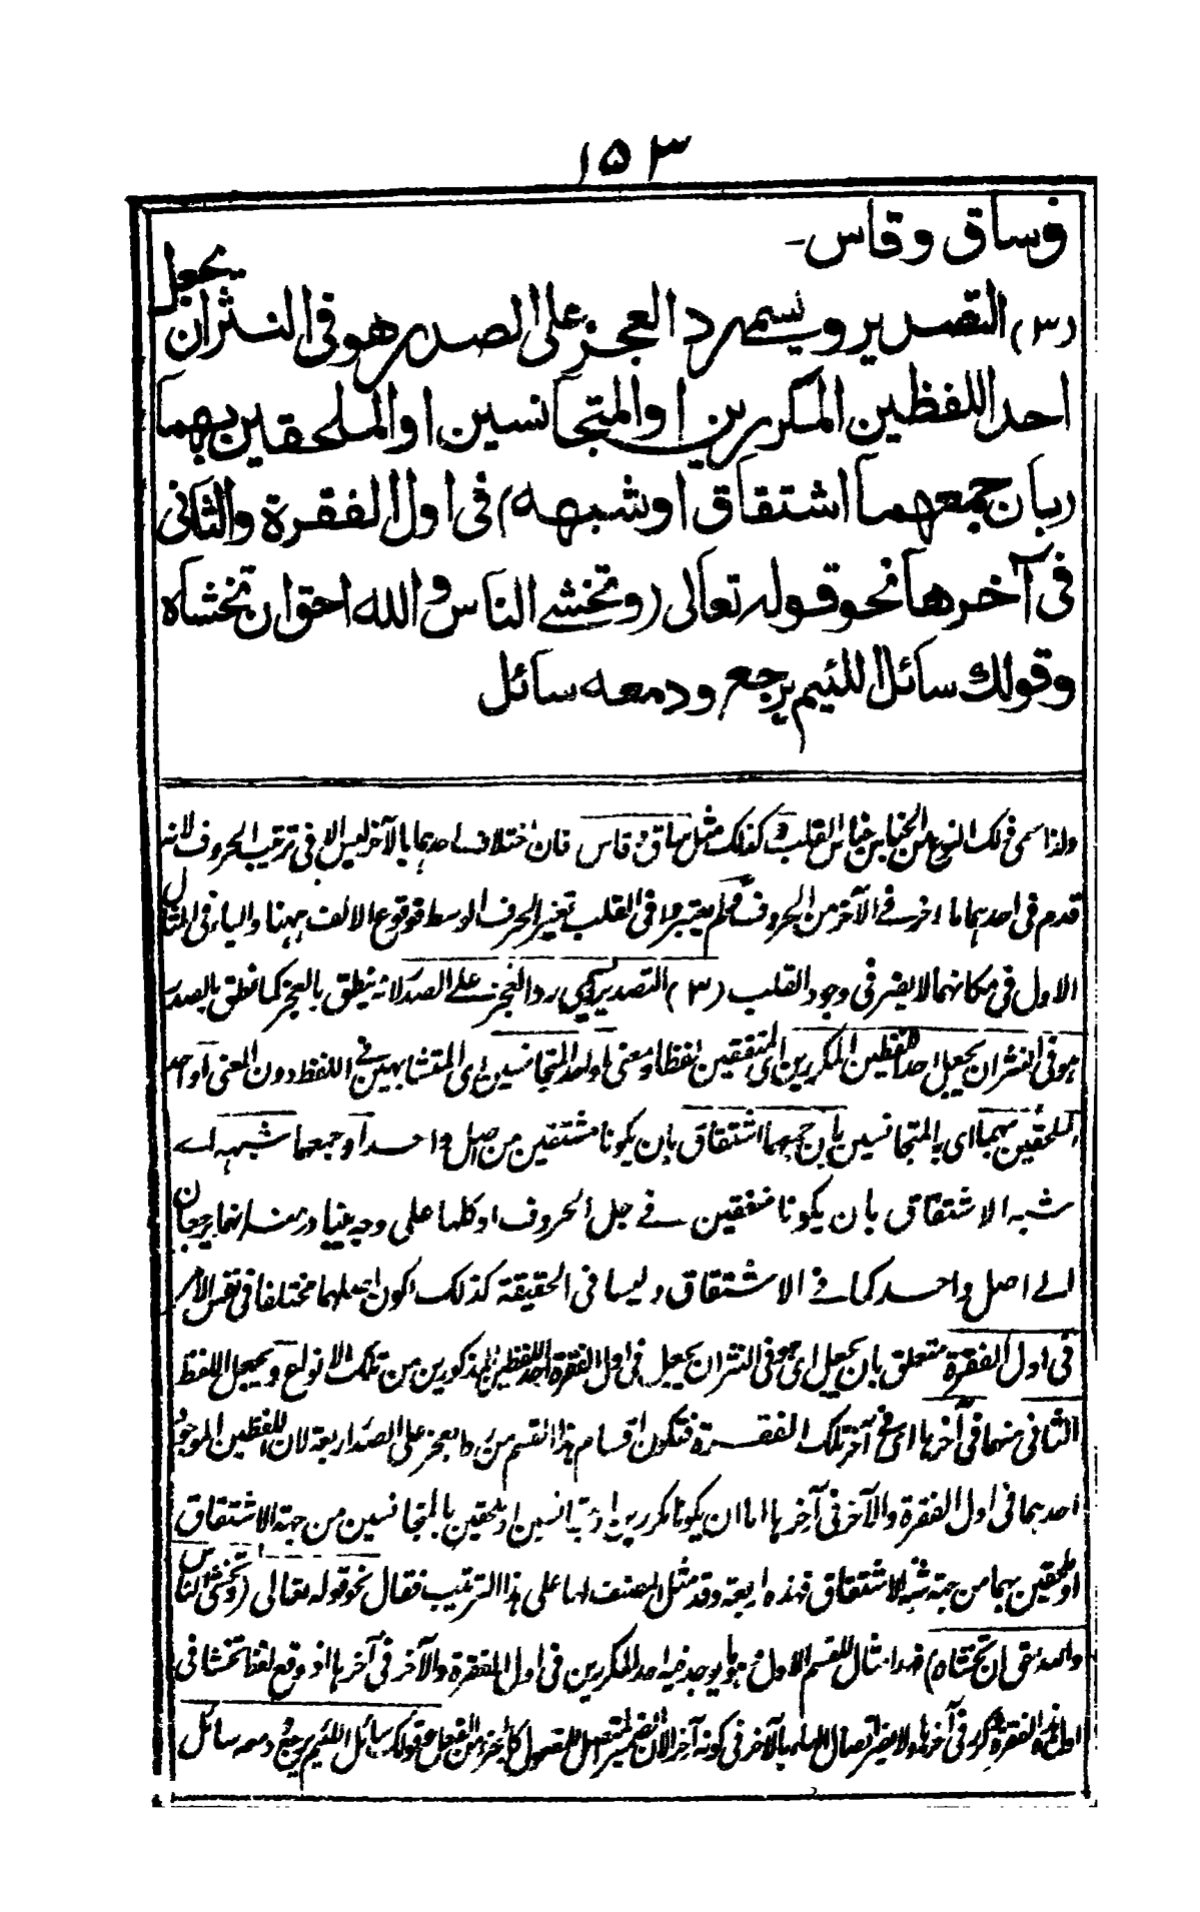 ١٥٣
وساق وقاس۔
(٣) التصدير ويسمى رد العجز على الصدر هو فى النثر ان يجعل
احد اللفظين المكررين او المتجانسين او الملحقين بهما
(بان جمعهما اشتقاق او شبهه) فى اول الفقرة والثانى
فى آخرها نحو قوله تعالى (وتخشى الناس والله احق ان تخشاه
وقولك سائل اللئيم يرجع ودمعه سائل
ولذا سمى ذلك النوع من الجناس جناس القلب وكذلك مثل ساق وقاس فان اختلاف احدهما بالآخر ليس الا فى ترتيب الحروف لانه
قدم فى احدهما ما اخر فى الآخر من الحروف ولم يعتبروا فى القلب تغير الحرف الوسط فوقوع الالف ههنا والياء فى المثال
الاول فى مكانهما لا يضر فى وجود القلب (٣) التصدير ويسمى رد العجز على الصدر لانه ينطق بالعجز كما نطق بالصدر
هو فى النثر ان يجعل احد اللفظين المكررين اى المتفقين لفظا ومعنى او احد المتجانسين اى المتشابهين فى اللفظ دون المعنى او احد
الملحقين بهما اى بالمتجانسين بان جمعهما اشتقاق بان يكونا مشتقين من اصل واحد او جمعهما شبهه اے
شبه الاشتقاق بان يكونا متفقين فى جل الحروف او كلها على وجه يتبادر منه انهما يرجعان
الى اصل واحد كما فى الاشتقاق وليسا فى الحقيقة كذلك لكون اصلهما مختلفا فى نفس الامر
فى اول الفقرة متعلق بان يجعل اى هو فى النثر ان يجعل فى اول الفقرة احد اللفظين المذكورين من تلك الانواع ويجعل اللفظ
الثانى منهما فى آخرها اى فى آخر تلك الفقرة فتكون اقسام هذا القسم من رد العجز على الصدر اربعة لان اللفظين الموجود
احدهما فى اول الفقرة والآخر فى آخرها اما ان يكونا مكررين او متجانسين او ملحقين بالمتجانسين من جهة الاشتقاق
او ملحقين بهما من جهة شبه الاشتقاق فهذه اربعة وقد مثل المصنف لها على هذا الترتيب فقال نحو قوله تعالى (وتخشى الناس
والله احق ان تخشاه) فهذا مثال للقسم الاول وهو ما يوجد فيه احد المكررين فى اول الفقرة والآخر فى آخرها اذ وقع لفظ تخشا فى
اول هذه الفقرة وكرر فى آخرها ولا يضر اتصال الهاء بالآخر فى كونه آخرا لان الضمير المتصل المفعول كالجزء من الفعل وقولك سائل اللئيم يرجع ودمعه سائل